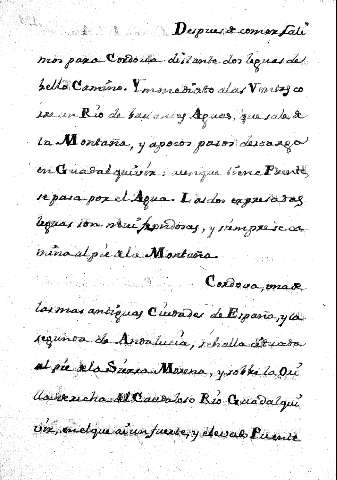 Despues de comer sali
mos para Cordova distante dos leguas de
bello Camino. Ynmediato a las Ventas co
rre un Rio de bastantes Aguas, que sale de
la Montaña, y a pocos pasos descarga
en Guadalquivir: aunque tiene Puente,
se pasa por el Agua. Las dos expresadas
leguas son mui frondosas, y siempre se ca
mina al pie de la Montaña.
Cordova, una de
las mas antiguas Ciudades de España, y la
segunda de Andalucia, se halla situada
al pie de la Sierra Morena, y sobre la Ori
lla derecha del Caudaloso Rio Guadalqui
vir, en el que ai un fuerte, y elevado Puente